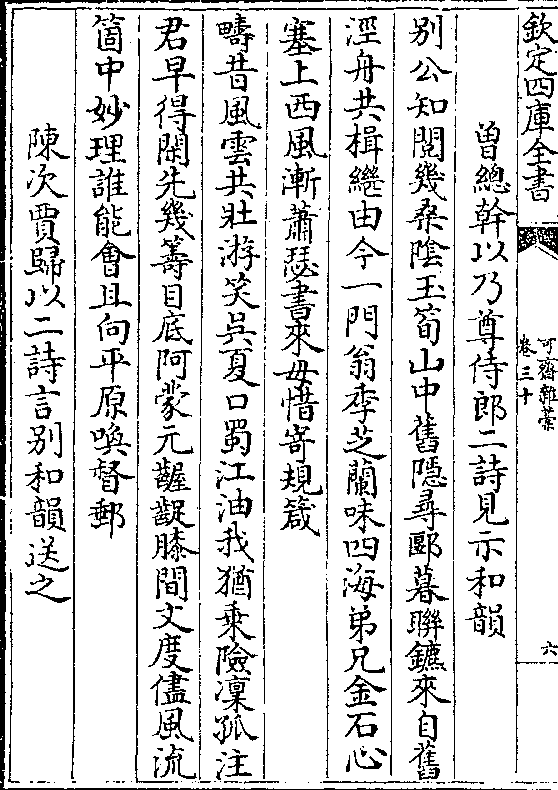 欽定四庫全書
可齋雜藁
卷三十
六
曾總幹以乃尊侍郎二詩見示和韻
別公知閱幾桑陰玉筍山中舊隱尋郾暮聯鑣來自舊
涇舟共楫繼由今一門翁季芝蘭味四海弟兄金石心
塞上西風漸蕭瑟書來毋惜寄規箴
疇昔風雲共壯游笑吳夏口蜀江油我猶乘險凜孤注
君早得閑先幾籌目底阿蒙元齷齪膝間文度儘風流
箇中妙理誰能會且向平原喚督郵
陳次賈歸以二詩言別和韻送之